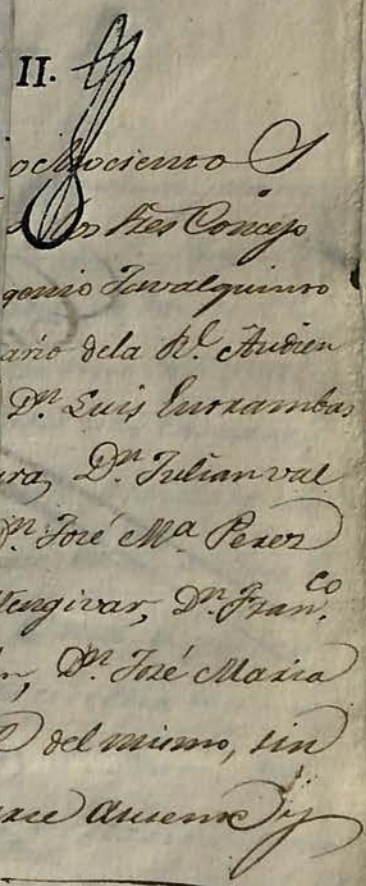 II.
ochocientos
Sres Concejo
genio Juvalquinto
ario dela Rl. Audien
Dn. Luis Entrambas
ura, Dn. Julian val
Dn. José Ma. Perez
Mengivar, Dn. Franco.
n, Dn. José Maria
del mismo, sin
ausente y